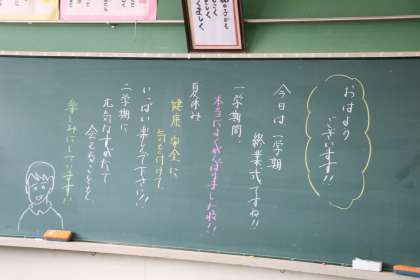 おはよう
ございます!!
今日は一学期
終業式ですね!!
一学期間、
本当によくがんばりましたね!!
夏休み
健康 安全に
気を付けて
いっぱい楽しんで下さい!!
二学期に
元気なすがたで
会えることを
楽しみにしています!!